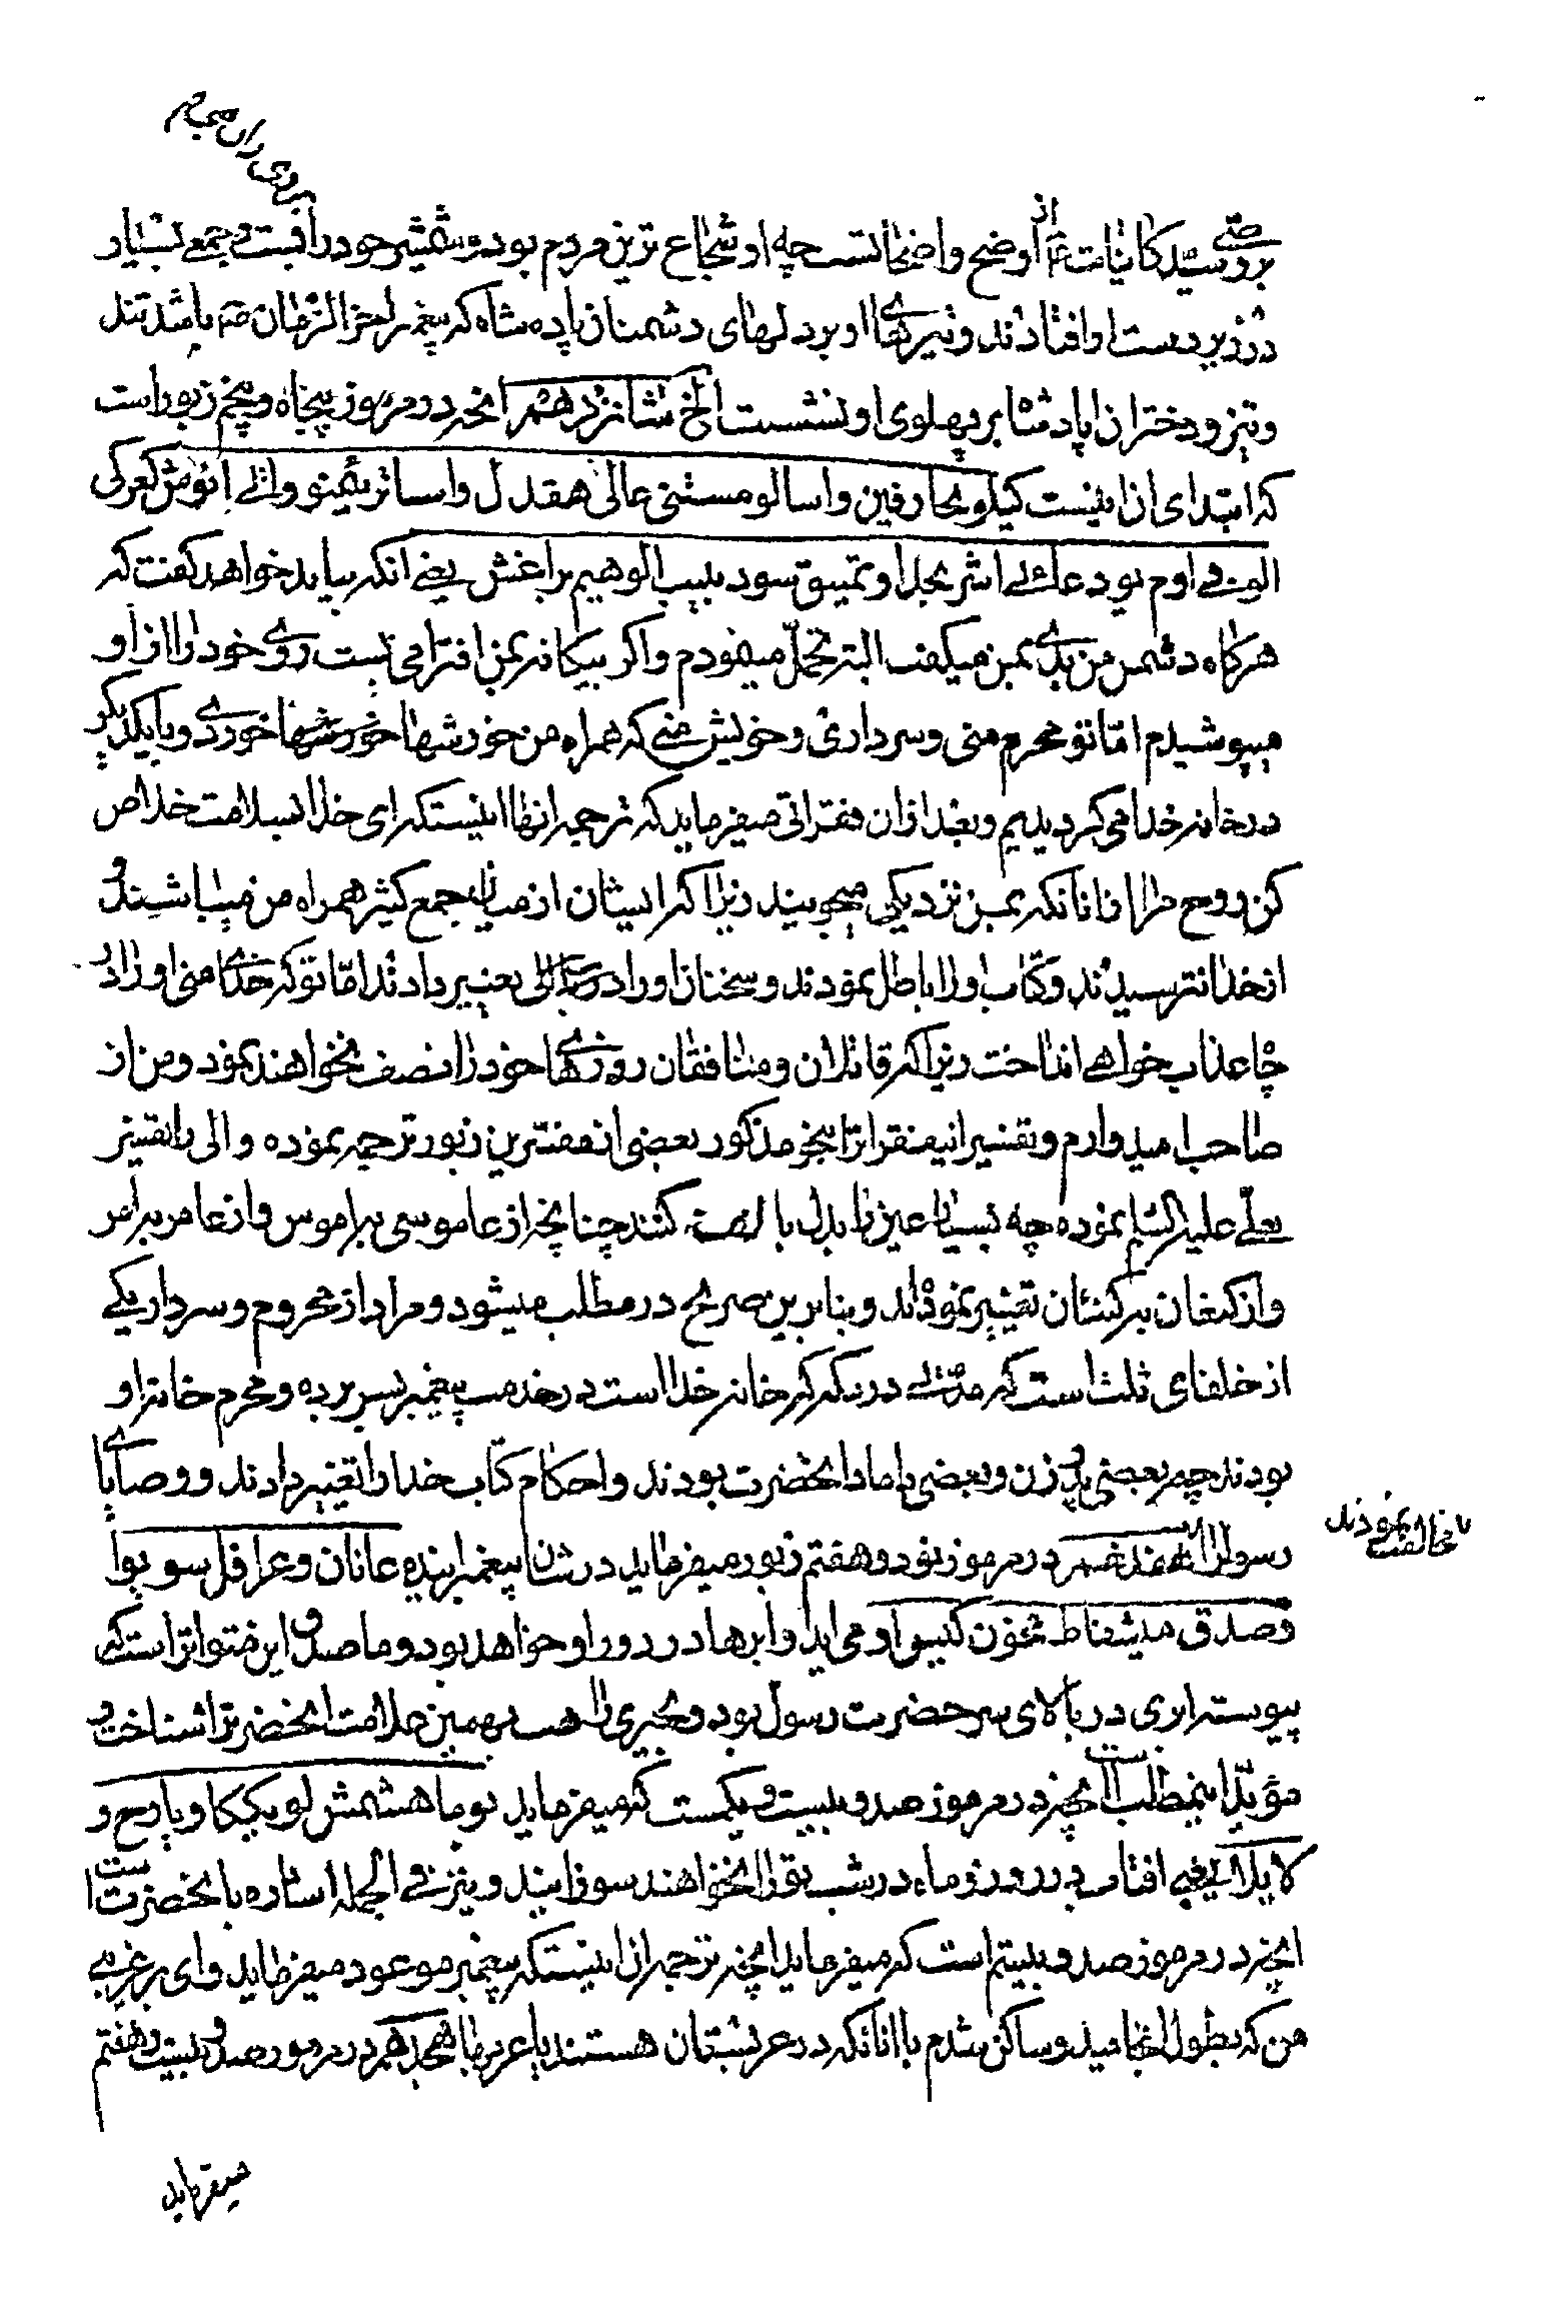 بر وصی سید کاینات ۴ از اوضح واضحاتست چه او شجاع ترین مردم بوده شمشیر خود را بست و جمعے بسیار
در زیر دست او افتادند و تیرهای او بر دلهای دشمنان پادشاه که پیغمبر اخر الزمان ص باشد تند
و تیز و دختران پادشاه بر پهلوی او نشست الخ شانزدهم انچه در مرموز پنجاه و پنجم زبور است
که ابتدای ان اینست
هرکاه دشمن من بدی بمن میکفت البته تحمل مینمودم و اکر بیکانه بمن افترا می بست روی خود را از او
میپوشیدم امّا تو محرم منی و سرداری و خویش منے که همراه من خورشها خوردی و با یکدیکر
در خانه خدا می کردیدیم و بعد ازان فقراتی میفرماید که ترجمه انها اینستکه ای خدا بسلامت خلاص
کن روح مرا از انانکه بمن نزدیکی میجویند زیرا که ایشان از میان جمع کثیر همراه من میباشند و
از خدا نترسیدند و کتاب او را باطل نمودند و سخنان او را در تغییر دادند امّا تو که خدای منی او را در
چاه عذاب خواهے انداخت زیرا که قاتلان و منافقان روزهای خود را نصف نخواهند نمود و من از
صاحب امیدوارم و تفسیر این فقرات را بنحو مذکور بعضی از مفسرین زبور ترجمه نموده و الی را تفسیر
بعلے علیه السّلم نموده چه بسیار عین را بدل با الف کنند چنانچه از عاموسی به اموس و از عامر به امر
و از کنعان به کنئان تغییر نموده‌اند و بنابرین صریح در مطلب میشود و مراد از محروم و سردار یکے
از خلفای ثلث است که مدتے در مکه که خانه خدا است در خدمت پیغمبر بسر برده و محرم خانه او
بودند چه بعضی پدر زن و بعضی داماد انحضرت بودند و احکام کتاب خدا را تغییر دادند و وصایای
رسول را مخالفت نمودند هفدهم در مرموز نود و هفتم زبور میفرماید در شان پیغمبر اینده عانان و عرافل سو یوا
و صدق مشفاط کسوا و می اید و ابرها در دور او خواهد بود و ما صدق این متواتر است که
پیوسته ابری در بالای سر حضرت رسول بود و بحیری راهب بهمین علامت انحضرت را شناخت و
مؤید اینمطلب است انچه در مرموز صد و بیست و یکمست که میفرماید یوما هشمش لو یککا و یارح و
لا یلا یعنی افتاب در روز و ماه در شب تو را نخواهند سوزانید و نیز فے الجمله اشاره بانحضرت است
انچه در مرموز صد و بیستم است که میفرماید انچه ترجمه ان اینستکه پیغمبر موعود میفرماید وای بر غریبی
من که بطول انجامید و ساکن شدم با انانکه در عربستان هستند هجدهم در مرموز صد و بیست و هفتم
میفرماید